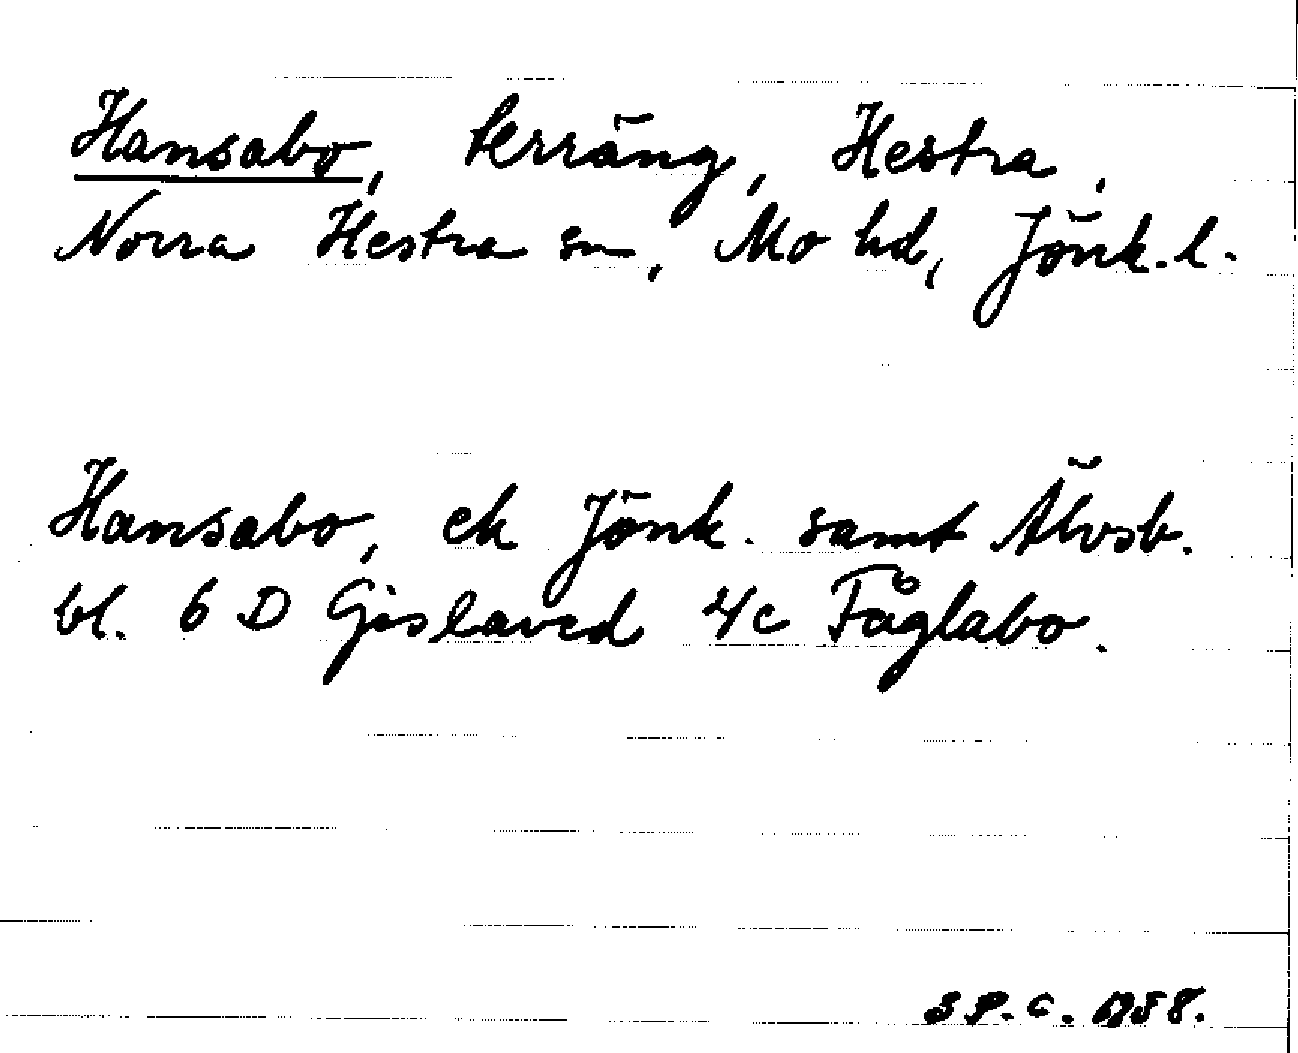 Hansabo, terräng, Hestra,
Norra Hestra sn, Mo hd, Jönk.l.
Hansabo, ek Jönk. samt Älvsb.
bl. 6 D Gislaved 4c Fåglabo.
S P.C. 1958.